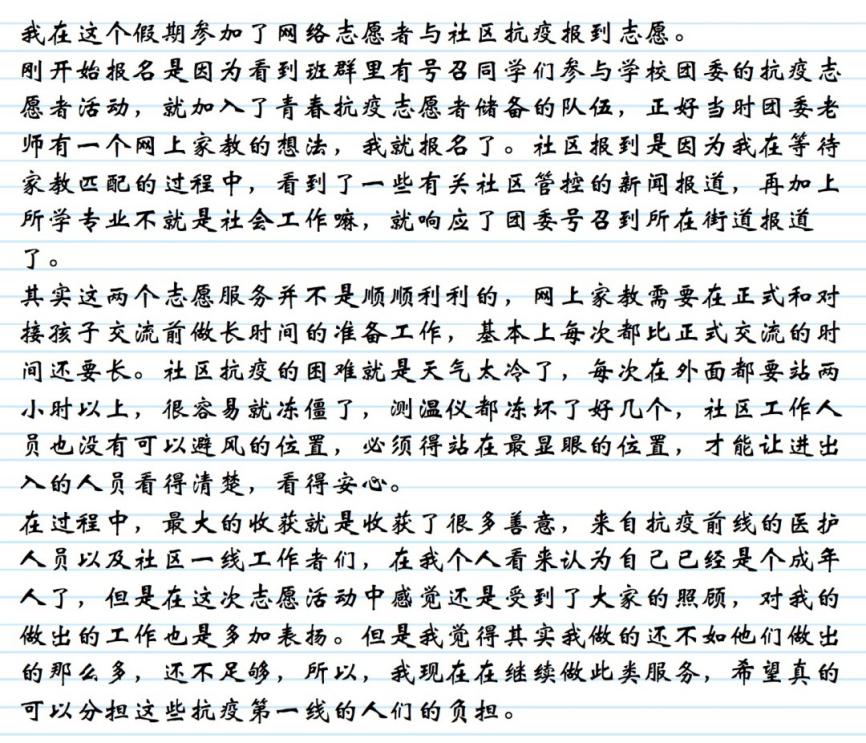 我在这个假期参加了网络志愿者与社区抗疫报到志愿。
刚开始报名是因为看到班群里有号召同学们参与学校团委的抗疫志
愿者活动，就加入了青春抗疫志愿者储备的队伍，正好当时团委老
师有一个网上家教的想法，我就报名了。社区报到是因为我在等待
家教匹配的过程中，看到了一些有关社区管控的新闻报道，再加上
所学专业不就是社会工作嘛，就响应了团委号召到所在街道报道
了。
其实这两个志愿服务并不是顺顺利利的，网上家教需要在正式和对
接孩子交流前做长时间的准备工作，基本上每次都比正式交流的时
间还要长。社区抗疫的困难就是天气太冷了，每次在外面都要站两
小时以上，很容易就冻僵了，测温仪都冻坏了好几个，社区工作人
员也没有可以避风的位置，必须得站在最显眼的位置，才能让进出
入的人员看得清楚，看得安心。
在过程中，最大的收获就是收获了很多善意，来自抗疫前线的医护
人员以及社区一线工作者们，在我个人看来认为自己已经是个成年
人了，但是在这次志愿活动中感觉还是受到了大家的照顾，对我的
做出的工作也是多加表扬。但是我觉得其实我做的还不如他们做出
的那么多，还不足够，所以，我现在在继续做此类服务，希望真的
可以分担这些抗疫第一线的人们的负担。